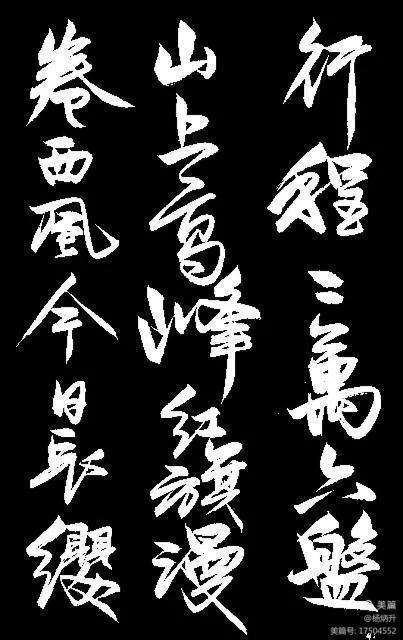 行程二萬六盤
山上高峰紅旗漫
卷西風今日長纓
美篇
@杨炳升
美篇号: 17504552